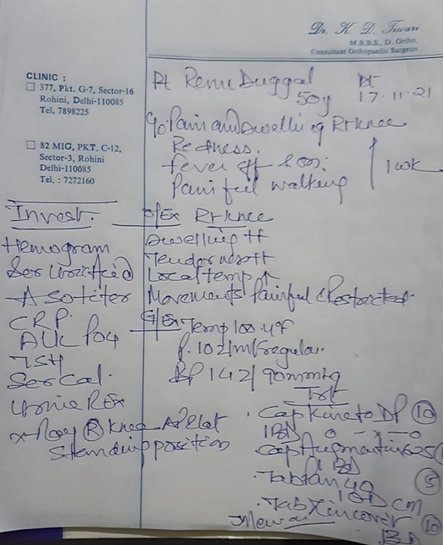 Dr. K. D. Tiwari
M.B.B.S., D. Ortho.
Consultant Orthopaedic Surgeon
CLINIC :
377, Pkt. G-7, Sector-16
Rohini, Delhi-110085
Tel. 7898225
82 MIG, PKT. C-12,
Sector-3, Rohini
Delhi-110085
Tel. : 7272160
Pt Renu Duggal
50y
Dt
17-11-21
C/o Pain and Swelling Rt knee
Redness.
Fever
Painful walking
1 wk
Invest.
Hemogram
Ser Uric Acid
ASO titer
CRP
TSH
Ser Cal.
Urine R Ex
X-Ray (R) Knee AP Lat
Standing position
O/Ex Rt knee
Swelling ++
Tenderness ++
Local temp ↑
Movements Painful & Restricted.
G/Ex Temp 100.4°F
P. 102/m regular.
BP 142/90 mmHg
Trt
Cap Kineto DP (10)
1BD 0-x-0
Cap Augmentin 625
1 BD
(5)
Tab Pan 40
1 OD
Tab Xincover (10)
BD